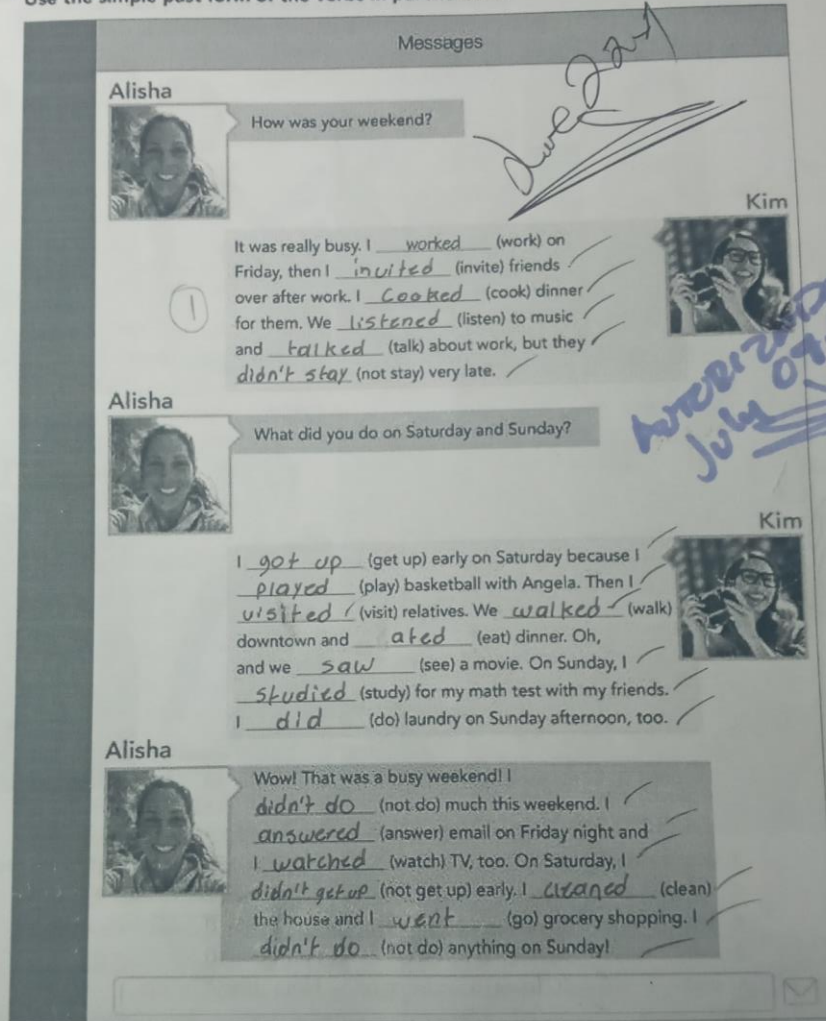 Messages
Alisha
How was your weekend?
Kim
It was really busy. I worked (work) on
Friday, then I invited (invite) friends
over after work. I Cooked (cook) dinner
for them. We listened (listen) to music
and talked (talk) about work, but they
didn't stay (not stay) very late.
1
AUTORIZADO
July 09
Alisha
What did you do on Saturday and Sunday?
Kim
I got up (get up) early on Saturday because I
played (play) basketball with Angela. Then I
visited (visit) relatives. We walked (walk)
downtown and ated (eat) dinner. Oh,
and we saw (see) a movie. On Sunday, I
studied (study) for my math test with my friends.
I did (do) laundry on Sunday afternoon, too.
Alisha
Wow! That was a busy weekend! I
didn't do (not do) much this weekend. I
answered (answer) email on Friday night and
I watched (watch) TV, too. On Saturday, I
didn't get up (not get up) early. I cleaned (clean)
the house and I went (go) grocery shopping. I
didn't do (not do) anything on Sunday!